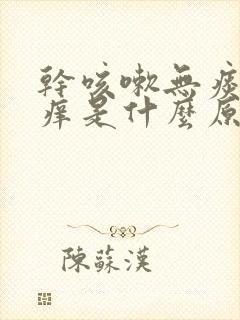 幹咳嗽無痰
痒是什麼原
陳蘇漢